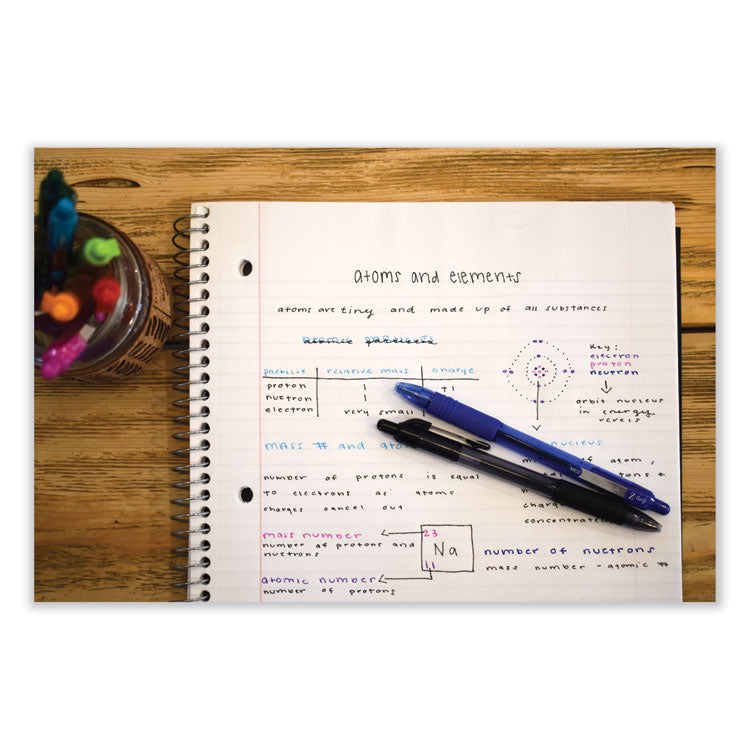 atoms and elements
atoms are tiny and made up of all substances
atomic particles
particle relative mass charge
proton 1 +1
nuetron 1
electron very small
Key:
electron
proton
neutron
orbit nucleus
in energy
levels
mass # and
nucleus
of atom,
number of protons is equal
to electrons as atoms
charges cancel out
concentrated
mass number
number of protons and
nuetrons
23
Na
11
atomic number
number of protons
number of nuetrons
mass number - atomic #
MED
Z-Grip